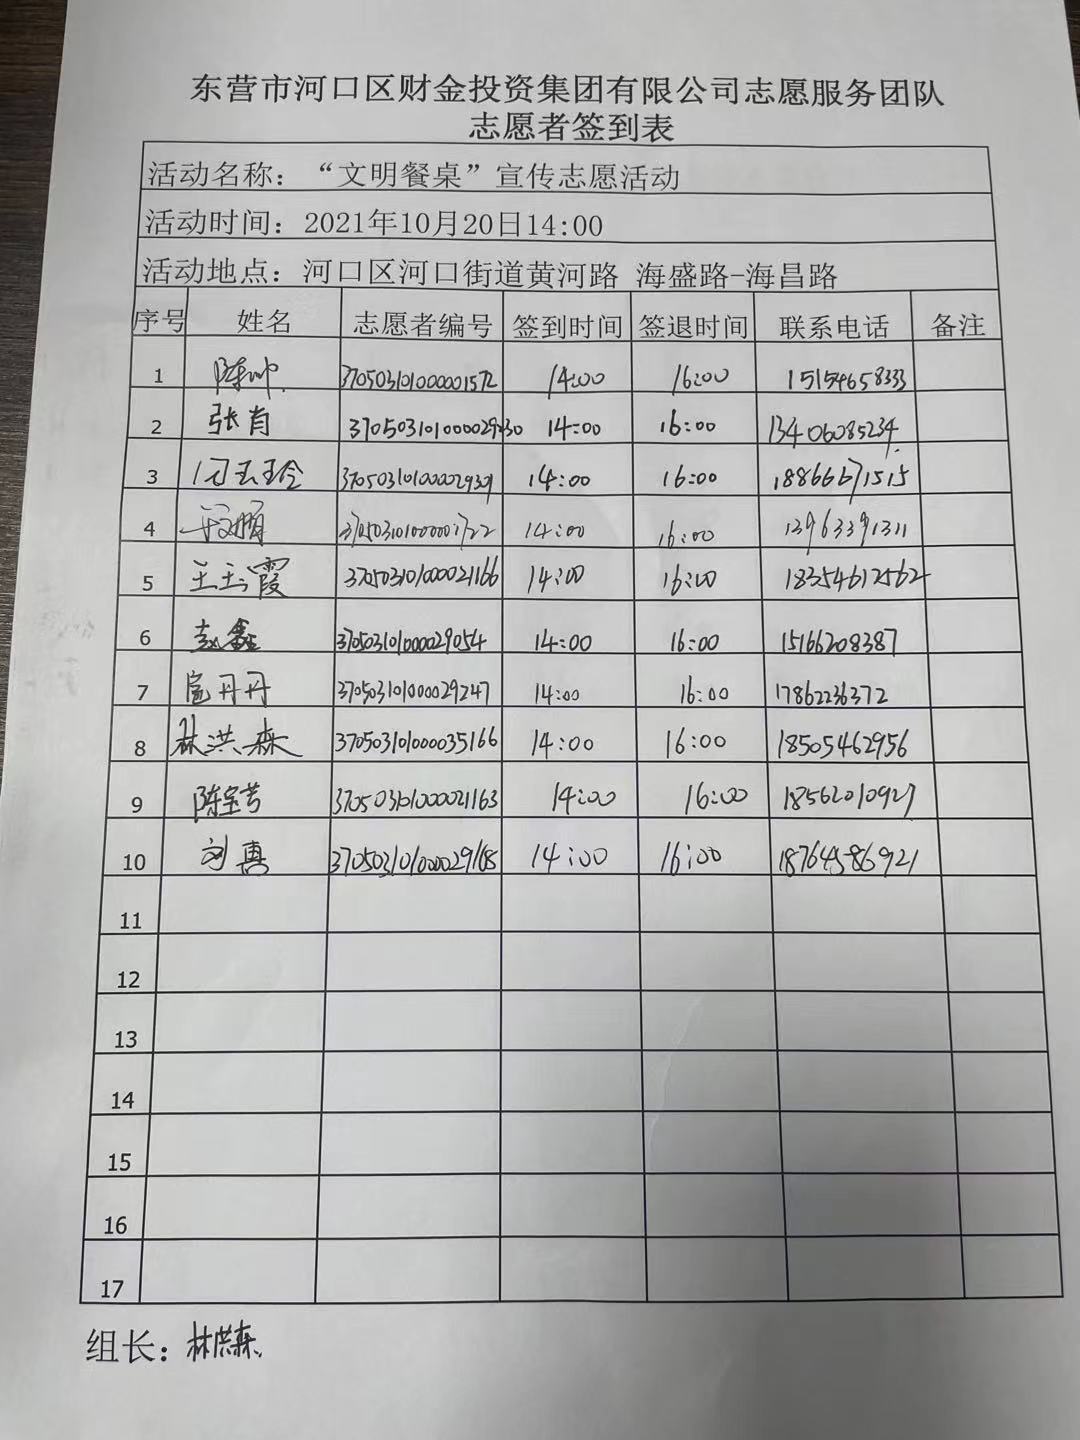 东营市河口区财金投资集团有限公司志愿服务团队
志愿者签到表
活动名称：“文明餐桌”宣传志愿活动
活动时间：2021年10月20日14:00
活动地点：河口区河口街道黄河路 海盛路-海昌路
序号 姓名 志愿者编号 签到时间 签退时间 联系电话 备注
1 陈帅 370503101000001572 14:00 16:00 15154658333
2 张肖 370503101000029230 14:00 16:00 13406085234
3 14:00 16:00 18866671515
4 370503101000001722 14:00 16:00 13963391311
5 王玉霞 370503101000021166 14:00 16:00 18354612562
6 赵鑫 370503101000029054 14:00 16:00 15166208387
7 扈丹丹 370503101000029247 14:00 16:00 17862236372
8 林洪森 370503101000035166 14:00 16:00 18505462956
9 陈宝芳 370503101000021163 14:00 16:00 18562010927
10 刘真 370503101000029168 14:00 16:00 18764586921
11
12
13
14
15
16
17
组长：林洪森